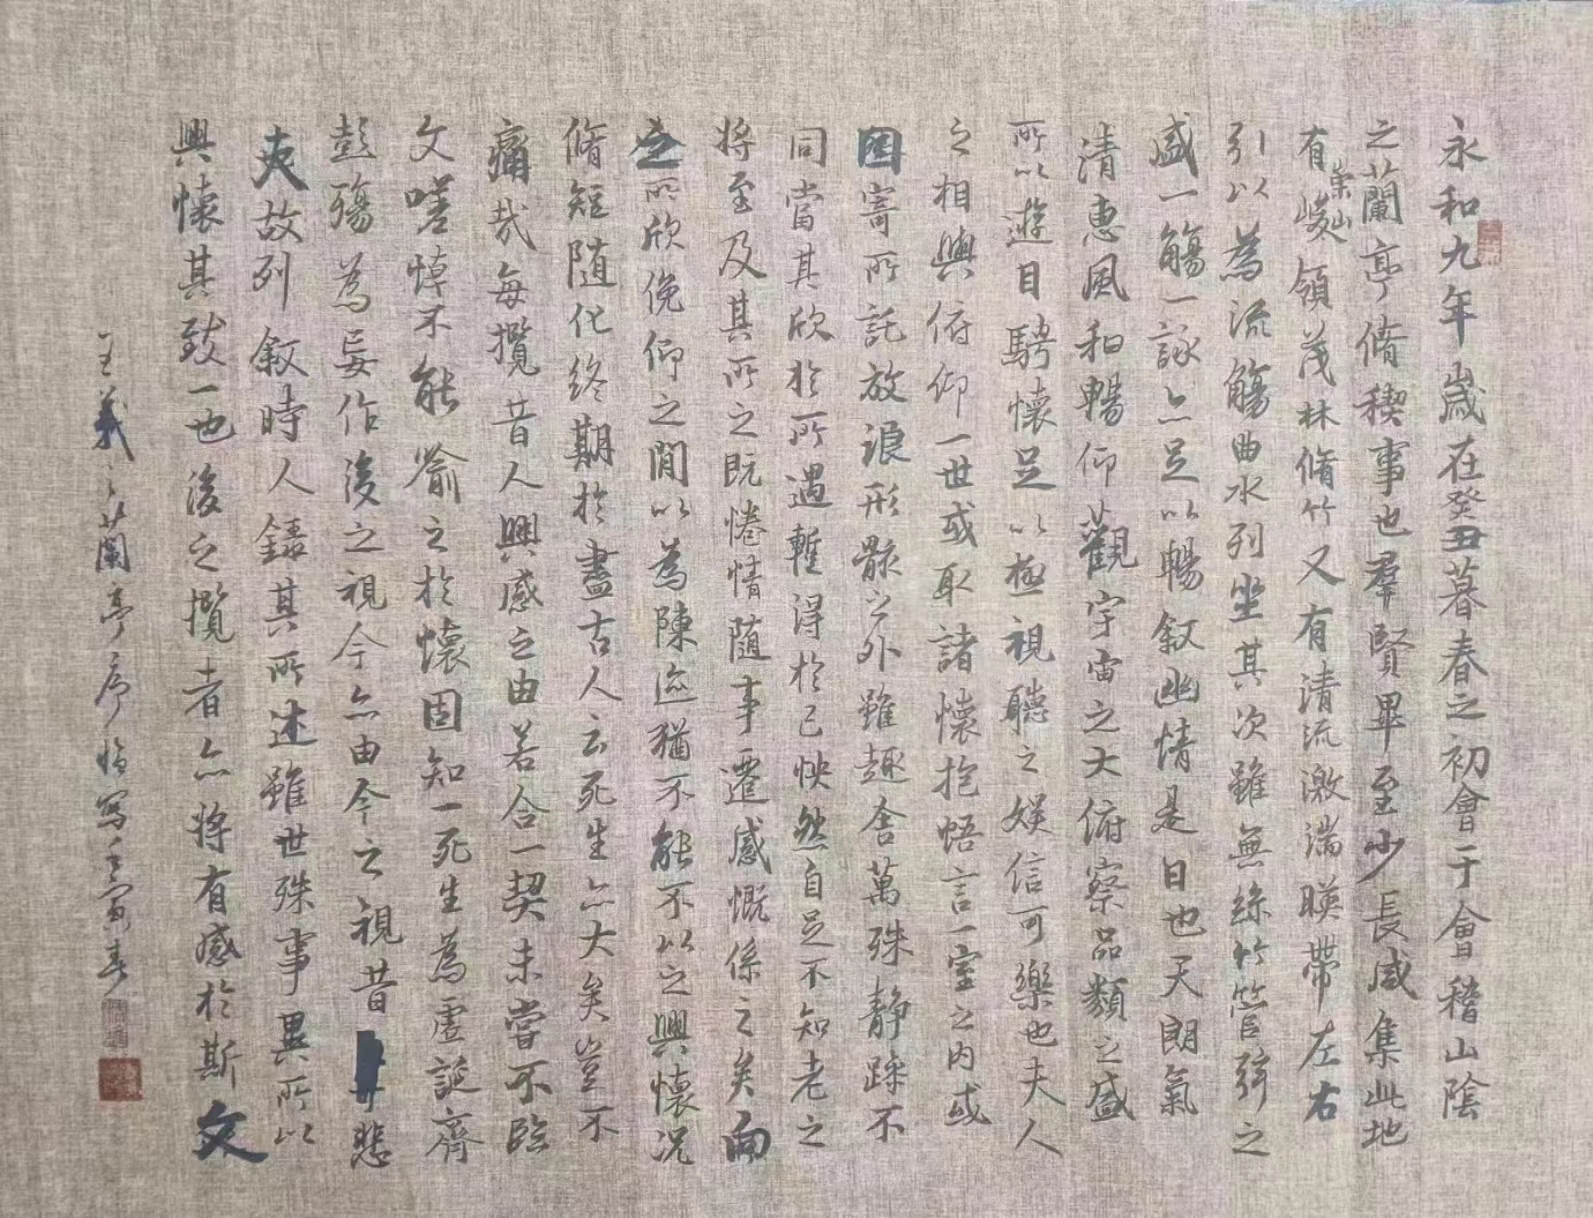 永和九年歲在癸丑暮春之初會于會稽山陰
之蘭亭脩稧事也羣賢畢至少長咸集此地
有崇山峻領茂林脩竹又有清流激湍暎帶左右
引以為流觴曲水列坐其次雖無絲竹管弦之
盛一觴一詠亦足以暢敘幽情是日也天朗氣
清惠風和暢仰觀宇宙之大俯察品類之盛
所以遊目騁懷足以極視聽之娛信可樂也夫人
之相與俯仰一世或取諸懷抱悟言一室之內或
因寄所託放浪形骸之外雖趣舍萬殊靜躁不
同當其欣於所遇暫得於己怏然自足不知老之
將至及其所之既惓情隨事遷感慨係之矣向
之所欣俛仰之閒以為陳迹猶不能不以之興懷況
脩短隨化終期於盡古人云死生亦大矣豈不
痛哉每攬昔人興感之由若合一契未嘗不臨
文嗟悼不能喻之於懷固知一死生為虛誕齊
彭殤為妄作後之視今亦由今之視昔悲
夫故列敘時人錄其所述雖世殊事異所以
興懷其致一也後之攬者亦將有感於斯文
王羲之蘭亭序臨寫